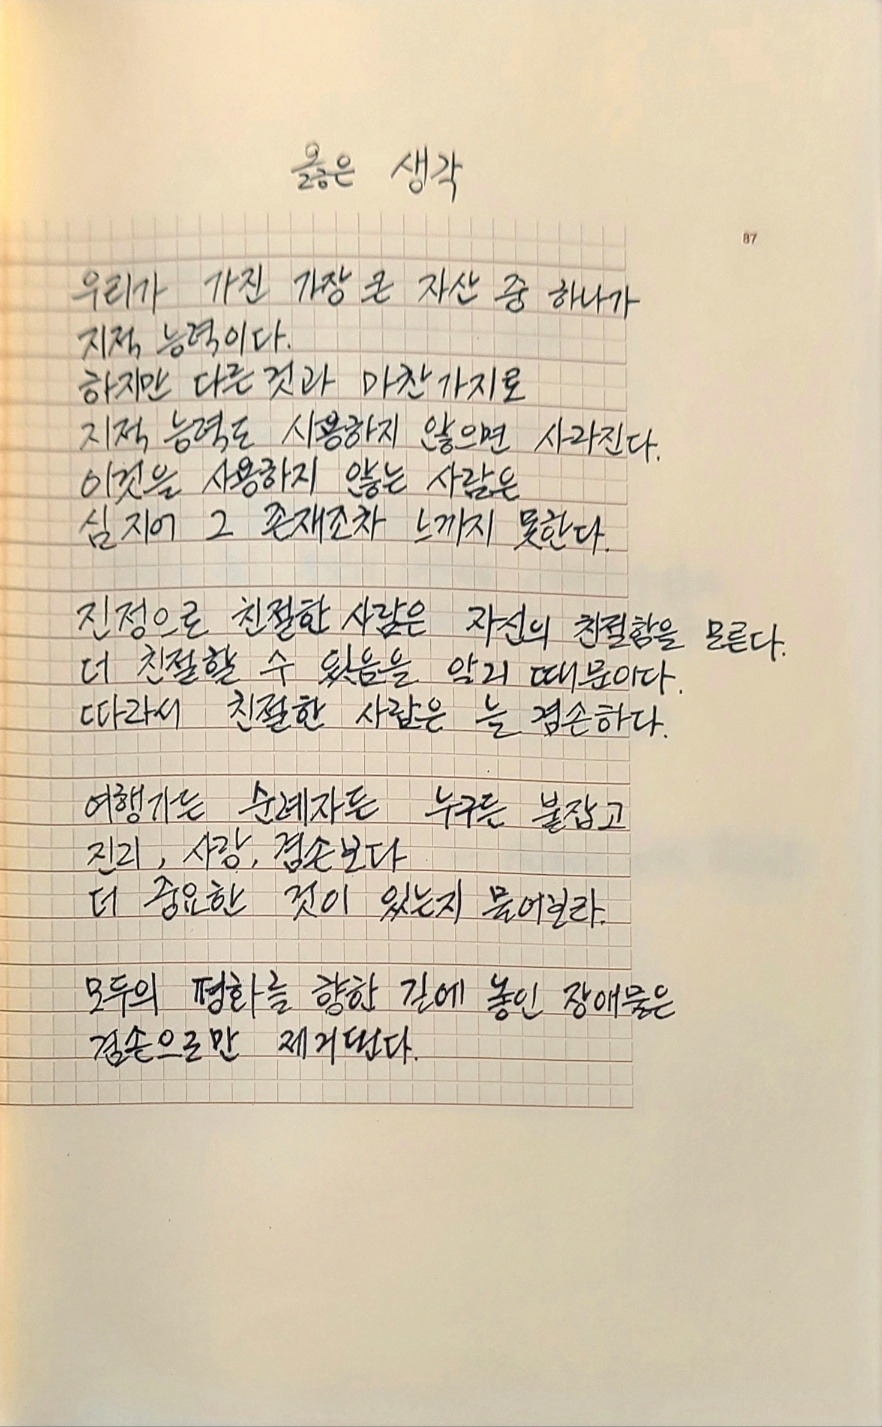 옳은 생각
87
우리가 가진 가장 큰 자산 중 하나가
지적 능력이다.
하지만 다른것과 마찬가지로
지적 능력도 사용하지 않으면 사라진다.
이것을 사용하지 않는 사람은
심지어 그 존재조차 느끼지 못한다.
진정으로 친절한 사람은 자신의 친절함을 모른다.
더 친절할 수 있음을 알기 때문이다.
따라서 친절한 사람은 늘 겸손하다.
여행가든 순례자든 누구든 붙잡고
진리, 사랑, 겸손보다
더 중요한 것이 있는지 물어보라.
모두의 평화를 향한 길에 놓인 장애물은
겸손으로만 제거된다.